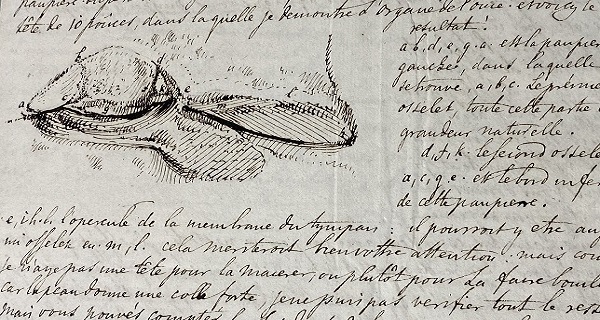 paupiere
tête de 10 pouces, dans laquelle je demontre l'organe de l'ouie. et voicy le
resultat!
a b, d, e, g. a. est la paupiere
gauche, dans laquelle
se trouve, a, b, c. Le premier
osselet toute cette partie
grandeur naturelle.
d, f, k. le second osselet
a, c, g, e. est le bord inferi
de cette paupiere.
e, i. h. l. l'opercule de la membrane du tympan: il pourroit y etre au
osselet en. m, l. cela meriteroit bien votre attention. mais com
je n'aye pas une tête pour la macerer, ou plutôt pour la faire bouil
car la peau donne une colle forte, je ne puis pas verifier tout le reste
mais vous pouvez